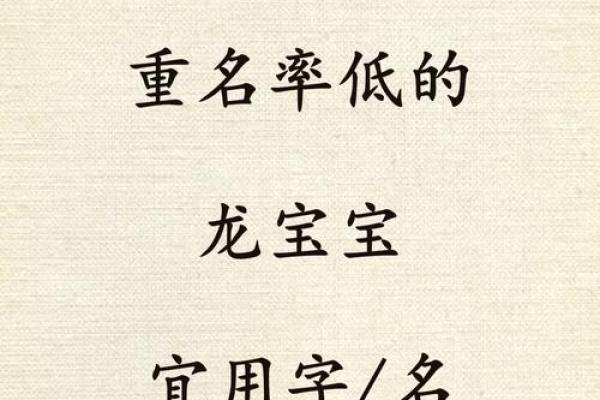 重名率低的
龙宝宝
宜用字/名